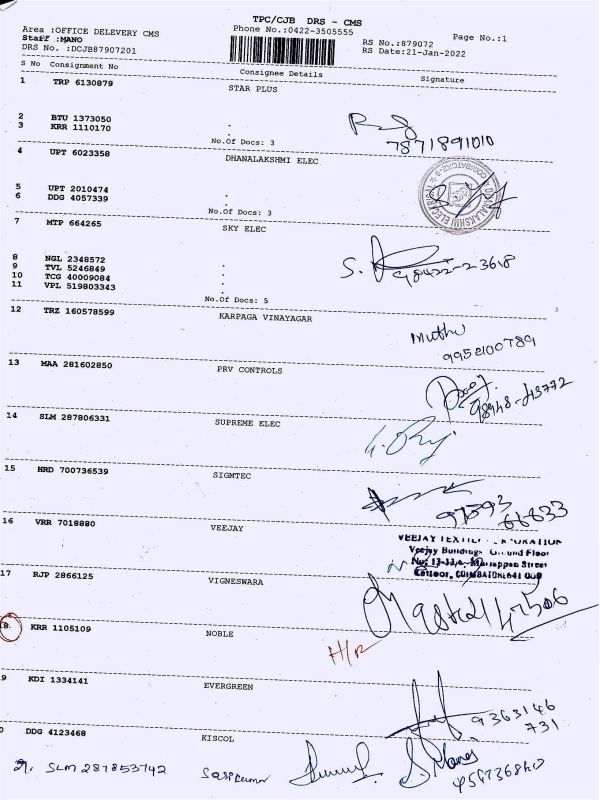 TPC/CJB DRS - CMS
Area :OFFICE DELEVERY CMS
Phone No.:0422-3505555
Page No.:1
Staff :MANO
RS No.:879072
DRS No. :DCJB87907201
RS Date:21-Jan-2022
S No Consignment No Consignee Details Signature
1 TRP 6130879 STAR PLUS
2 BTU 1373050 .
3 KRR 1110170 .
7871891010
No.Of Docs: 3
4 UPT 6023358 DHANALAKSHMI ELEC
5 UPT 2010474 .
6 DDG 4057339 .
No.Of Docs: 3
7 MTP 664265 SKY ELEC
8 NGL 2348572 .
9 TVL 5246849 .
10 TCG 40009084 .
11 VPL 519803343 .
98422-23618
No.Of Docs: 5
12 TRZ 160578599 KARPAGA VINAYAGAR
Muthu
9952100789
13 MAA 281602850 PRV CONTROLS
98948-43772
14 SLM 287806331 SUPREME ELEC
15 HRD 700736539 SIGMTEC
97593
66833
16 VRR 7018880 VEEJAY
VEEJAY
Veejay Buildings Ground Floor
Street
17 RJP 2866125 VIGNESWARA
18 KRR 1105109 NOBLE
H/R
9 KDI 1334141 EVERGREEN
9363146
731
0 DDG 4123468 KISCOL
21. SLM 287853742 Sasikumar